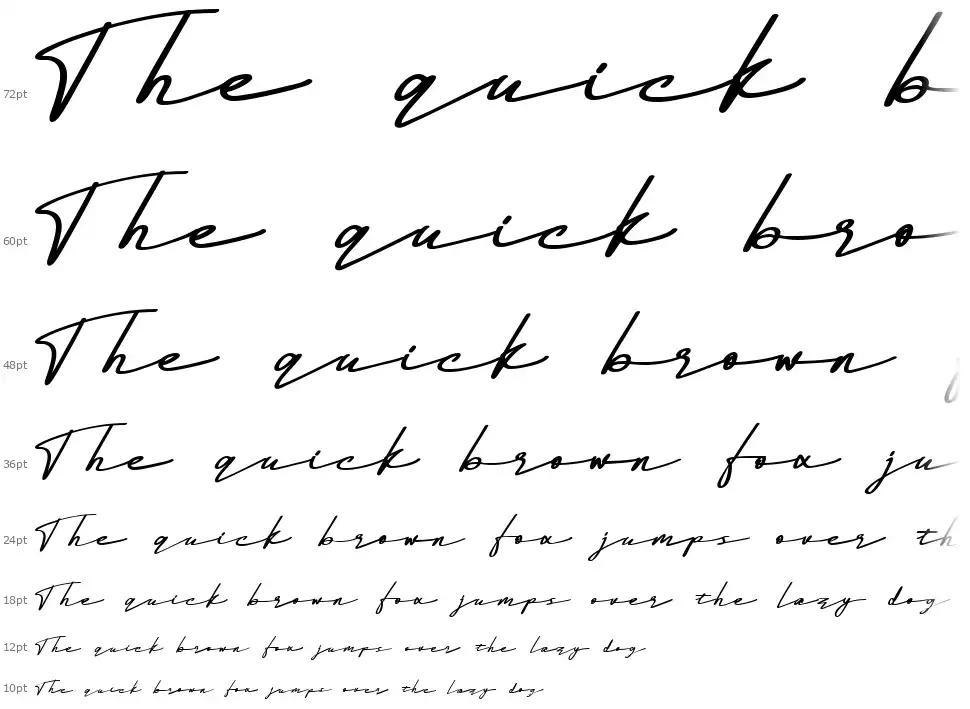 72pt The quick b
60pt The quick bro
48pt The quick brown f
36pt The quick brown fox ju
24pt The quick brown fox jumps over th
18pt The quick brown fox jumps over the lazy dog
12pt The quick brown fox jumps over the lazy dog
10pt The quick brown fox jumps over the lazy dog